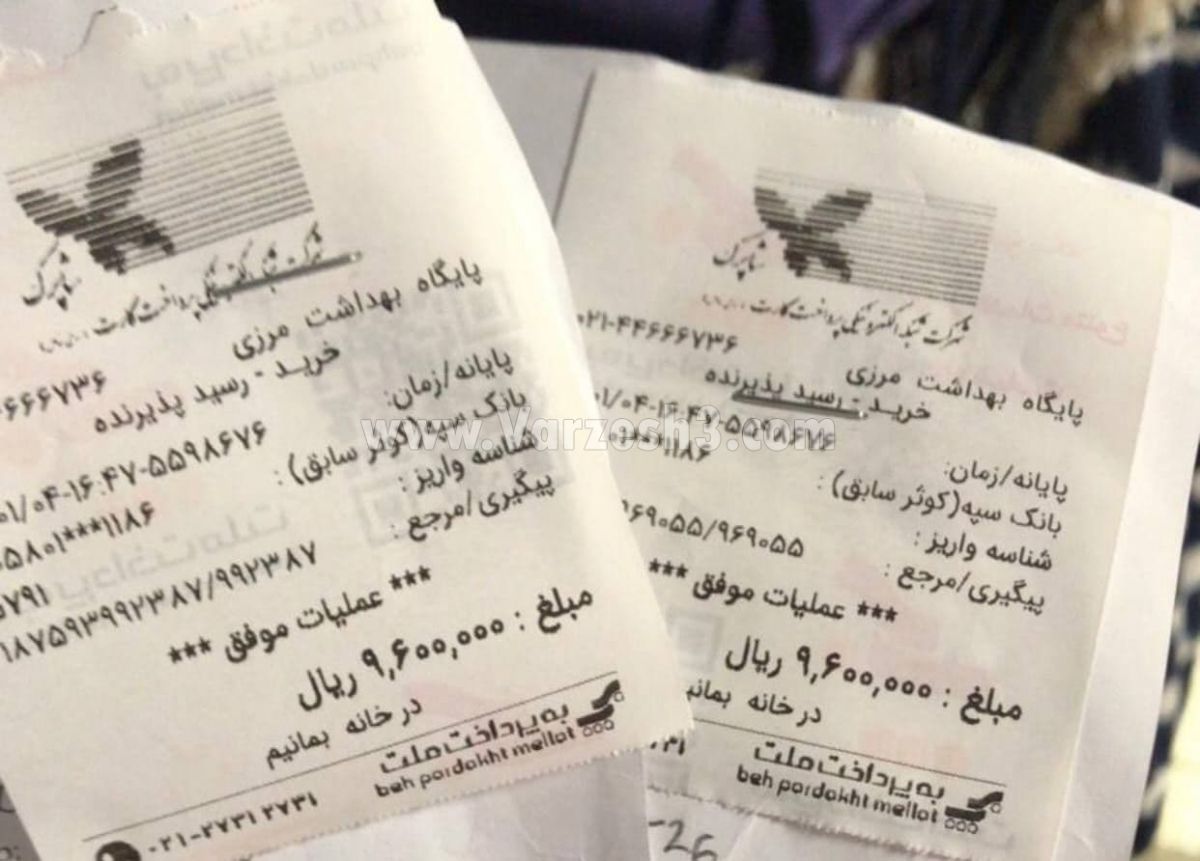 شاپرک
شرکت شبکه الکترونیکی پرداخت کارت
پایگاه بهداشت مرزی
۶۶۶۷۳۶
خرید - رسید پذیرنده
پایانه/زمان:
۰۱/۰۴-۱۶:۴۷-۵۵۹۸۶۷۶
بانک سپه(کوثر سابق) :
۵۸۰۱***۱۱۸۶
شناسه واریز :
۵۷۹۱
پیگیری/مرجع :
۱۸۷۵۹۳۹۹۲۳۸۷/۹۹۲۳۸۷
*** عملیات موفق ***
مبلغ : ۹,۶۰۰,۰۰۰ ریال
در خانه بمانیم
به پرداخت ملت
beh pardakht mellat
۰۲۱-۲۷۳۱۲۷۳۱
شاپرک
شرکت شبکه الکترونیکی پرداخت کارت
۰۲۱-۴۴۶۶۶۷۳۶
پایگاه بهداشت مرزی
خرید - رسید پذیرنده
پایانه/زمان:
۰۱/۰۴-۱۶:۴۷-۵۵۹۸۶۷۶
بانک سپه(کوثر سابق) :
***۱۱۸۶
شناسه واریز :
پیگیری/مرجع :
۹۶۹۰۵۵/۹۶۹۰۵۵
*** عملیات موفق ***
مبلغ : ۹,۶۰۰,۰۰۰ ریال
در خانه بمانی
به پرداخت ملت
beh pardakht mellat
۲۷۳۱
-26
www.Varzesh3.com